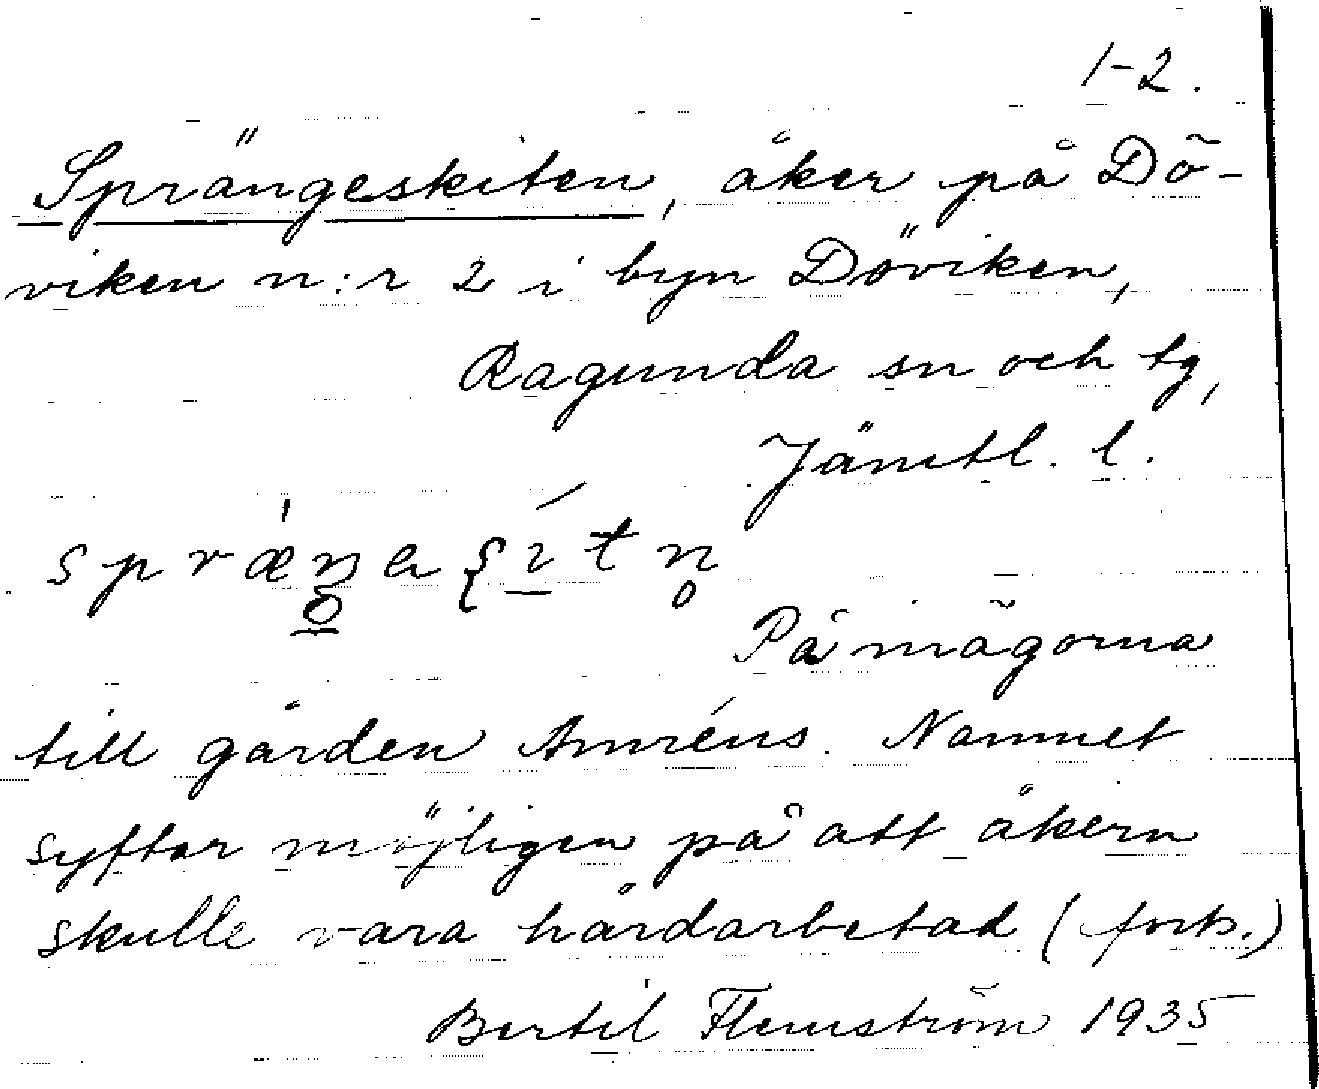 1-2.
Sprängeskiten, åker på Dö-
viken n:r 2 i byn Döviken,
Ragunda sn och tg,
Jämtl. l.
På inägorna
till gården Amréns. Namnet
syftar möjligen på att åkern
skulle vara hårdarbetad (forts.)
Bertil Flemström 1935